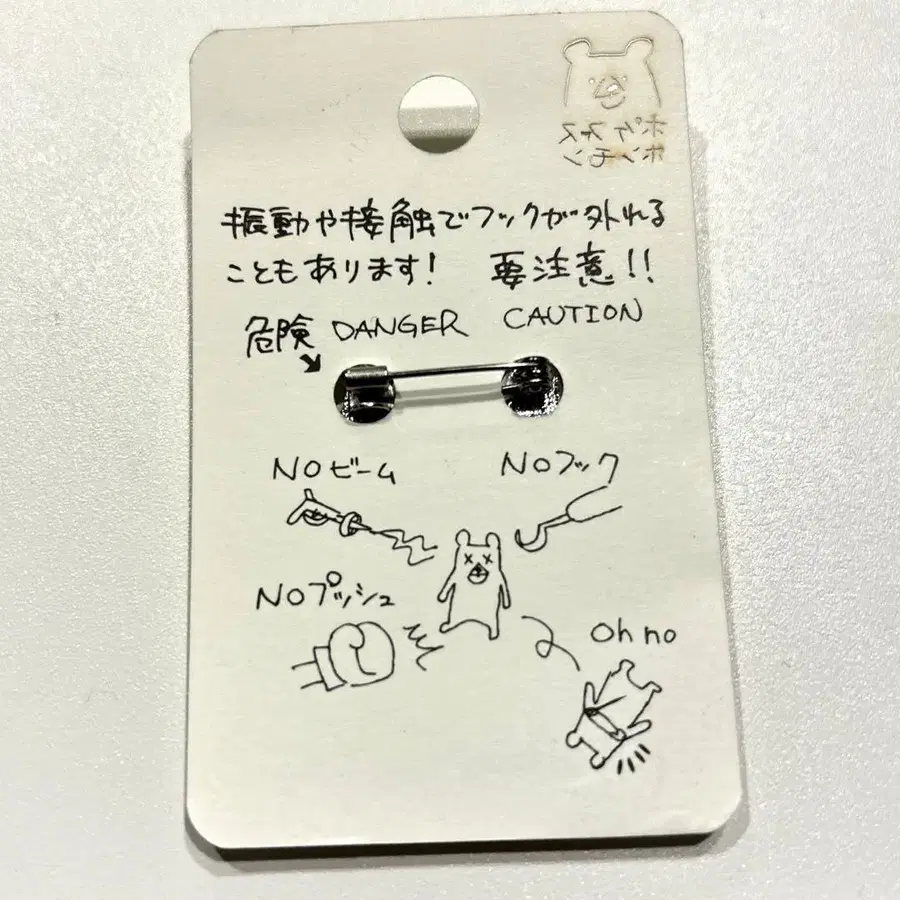 振動や接触でフックが外れる
こともあります! 要注意!!
危険 DANGER CAUTION
NOビーム NOフック
NOプッシュ
Oh no